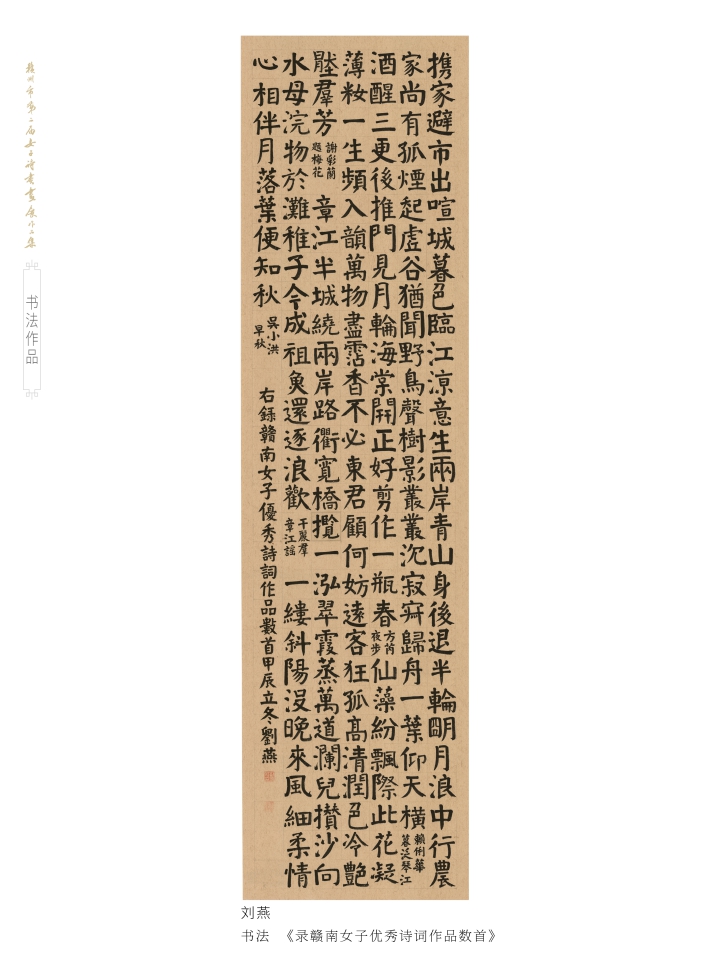 赣州市第二届女子诗书画展作品集
书法作品
携家避市出喧城暮色臨江涼意生兩岸青山身後退半輪明月浪中行農
家尚有孤煙起虛谷猶聞野鳥聲樹影叢叢沉寂寂歸舟一葉仰天橫
賴俐華
暮泛琴江
酒醒三更後推門見月輪海棠開正好剪作一瓶春
方芮
夜步
仙藻紛飄際此花凝
薄籹一生頻入韻萬物盡霑香不必東君顧何妨遠客狂孤高清潤色冷艷
壓羣芳
謝彩蘭
題梅花
章江半城繞兩岸路衢寬橋攬一泓翠霞蒸萬道瀾兒攢沙向
水母浣物於灘稚子今成祖魚還逐浪歡
干麗羣
章江謠
一縷斜陽沒晚來風細柔情
心相伴月落葉便知秋
吳小洪
早秋
右錄贛南女子優秀詩詞作品數首甲辰立冬劉燕
刘燕
书法 《录赣南女子优秀诗词作品数首》